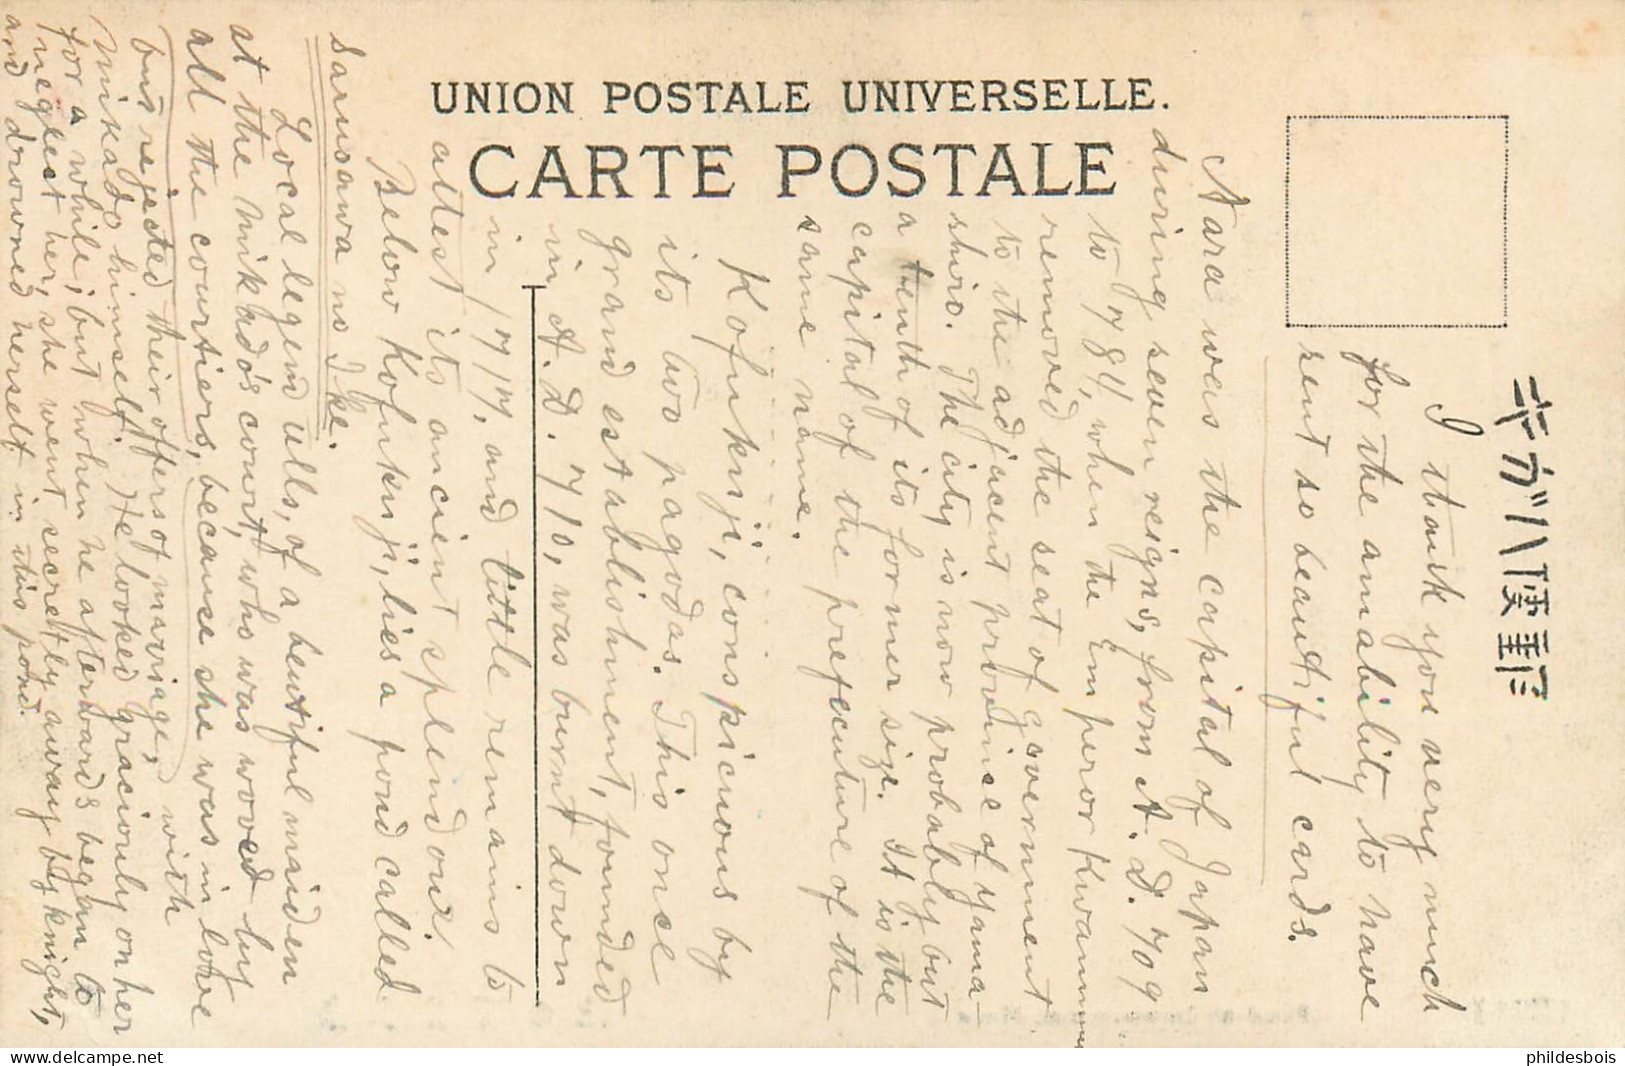 UNION POSTALE UNIVERSELLE.
CARTE POSTALE
キガハ便郵
I thank you very much
for the amability to have
sent so beautiful cards.
Nara was the capital of Japan
during seven reigns, from A. D. 709
to 784, when the Emperor Kwammu
removed the seat of government
to the adjacent province of Yama-
shiro. The city is now probably but
a tenth of its former size. It is the
capital of the prefecture of the
same name.
Kofukuji, conspicuous by
its two pagodas. This once
grand establishment, founded
in A. D. 710, was burnt down
in 1717, and little remains to
attest its ancient splendour.
Below Kofukuji, lies a pond called
Sarusawa no Ike.
Local legend tells, of a beautiful maiden
at the Mikado's court, who was wooed by
all the courtiers, because she was in love
but rejected their offers of marriage, with
Mikado himself. He looked graciously on her
for a while; but when he afterwards began to
neglect her, she went secretly away by knight,
and drowned herself in this pond.
phildesbois